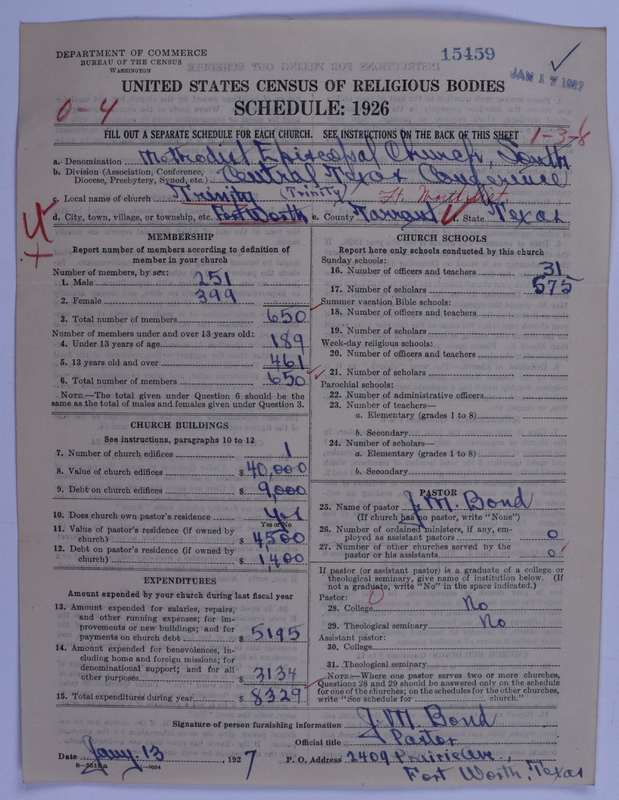 DEPARTMENT OF COMMERCE
BUREAU OF THE CENSUS
WASHINGTON
15459
JAN 17 1927
UNITED STATES CENSUS OF RELIGIOUS BODIES
0-4
SCHEDULE: 1926
FILL OUT A SEPARATE SCHEDULE FOR EACH CHURCH. SEE INSTRUCTIONS ON THE BACK OF THIS SHEET
1-3-8
a. Denomination Methodist Episcopal Church, South
b. Division (Association, Conference, Diocese, Presbytery, Synod, etc.) Central Texas Conference
c. Local name of church Trinity (Trinity)
d. City, town, village, or township, etc. Fort Worth e. County Tarrant f. State Texas
4
MEMBERSHIP
Report number of members according to definition of
member in your church
Number of members, by sex:
1. Male 251
2. Female 399
3. Total number of members 650
Number of members under and over 13 years old:
4. Under 13 years of age 189
5. 13 years old and over 461
6. Total number of members 650
NOTE.—The total given under Question 6 should be
same as the total of males and females given under Question 3.
CHURCH BUILDINGS
See instructions, paragraphs 10 to 12
7. Number of church edifices 1
8. Value of church edifices $40,000
9. Debt on church edifices $9,000
10. Does church own pastor's residence Yes
Yes or No
11. Value of pastor's residence (if owned by
church) $4500
12. Debt on pastor's residence (if owned by
church) $1400
EXPENDITURES
Amount expended by your church during last fiscal year
13. Amount expended for salaries, repairs,
and other running expenses; for im-
provements or new buildings; and for
payments on church debt $5195
14. Amount expended for benevolences, in-
cluding home and foreign missions; for
denominational support; and for all
other purposes $3134
15. Total expenditures during year $8329
CHURCH SCHOOLS
Report here only schools conducted by this church
Sunday schools:
16. Number of officers and teachers 31
17. Number of scholars 575
Summer vacation Bible schools:
18. Number of officers and teachers
19. Number of scholars
Week-day religious schools:
20. Number of officers and teachers
21. Number of scholars
Parochial schools:
22. Number of administrative officers
23. Number of teachers—
a. Elementary (grades 1 to 8)
b. Secondary
24. Number of scholars—
a. Elementary (grades 1 to 8)
b. Secondary
PASTOR
25. Name of pastor J. M. Bond
(If church has no pastor, write "None")
26. Number of ordained ministers, if any, em-
ployed as assistant pastors 0
27. Number of other churches served by the
pastor or his assistants 0
If pastor (or assistant pastor) is a graduate of a college or
theological seminary, give name of institution below. (If
not a graduate, write "No" in the space indicated.)
Pastor:
28. College No
29. Theological seminary No
Assistant pastor:
30. College
31. Theological seminary
NOTE.—Where one pastor serves two or more churches,
Questions 28 and 29 should be answered only on the schedule
for one of the churches; on the schedules for the other churches,
write "See schedule for church."
Signature of person furnishing information J. M. Bond
Official title Pastor
Date Jany. 13, 1927 P. O. Address 2409 Prairie Ave.,
Fort Worth, Texas